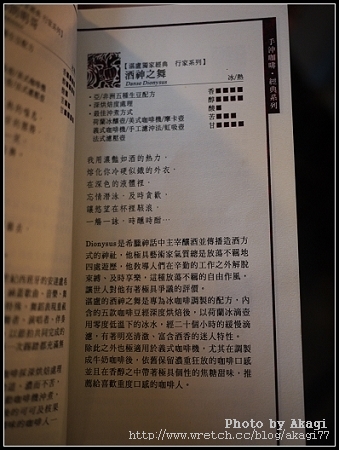 手沖咖啡・經典系列
【湛盧獨家經典 行家系列】
酒神之舞
Danse Dionysus
冰/熱
・亞/非洲五種生豆配方
・深烘焙度處理
・最佳沖煮方式
荷蘭冰釀壺/美式咖啡機/摩卡壺
義式咖啡機/手工濾沖法/虹吸壺
法式濾壓壺
香■■■■■
醇■■■■■
酸■
苦■■■
甘■■■■
我用濃豔如酒的熱力,
熔化你冷硬似鐵的外衣,
在深色的液體裡,
忘情潛泳、及時貪歡,
讓慾望在杯裡駭浪,
一觴一詠,時醺時酣…
Dionysus是希臘神話中主宰釀酒並傳播造酒方
式的神祉,他極具藝術家氣質總是放蕩不羈地
四處遊歷,他教導人們在辛勤的工作之外解脫
束縛、及時享樂,這種放蕩不羈的自由作風,
讓世人對他有著極具爭議的評價。
湛盧的酒神之舞是專為冰咖啡調製的配方,內
含的五款咖啡豆經深度烘焙後,以荷蘭冰滴壺
用零度低溫下的冰水,經二十個小時的緩慢滴
濾,有著明亮清澈,富含酒香的迷人特性。
除此之外也極適用於義式咖啡機,尤其在調製
成牛奶咖啡後,依舊保留濃重狂放的咖啡口感
並且在香醇之中帶著極具個性的焦糖甜味,推
薦給喜歡重度口感的咖啡人。
Photo by Akagi
http://www.wretch.cc/blog/akagi77